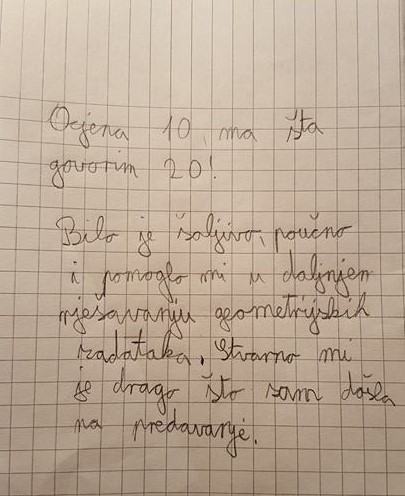 Ocjena 10, ma šta
govorim 20!
Bilo je šaljivo, poučno
i pomoglo mi u daljnjem
rješavanju geometrijskih
zadataka. Stvarno mi
je drago što sam došla
na predavanje.